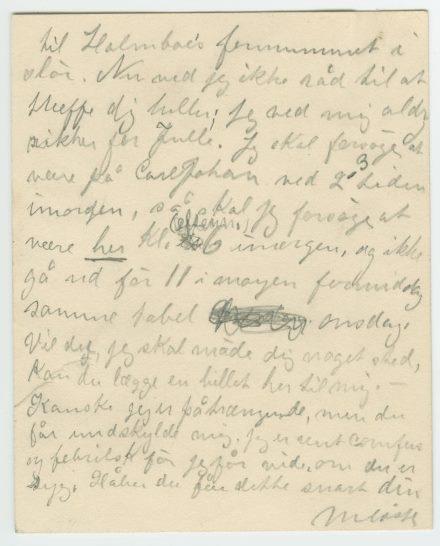 til Holmboe's fennummet i
slör. Nu ved jeg ikke råd til at
treffe dig heller; jeg ved mig aldri
sikker for Julle. Jeg skal forsøge at
være på Carl Johan ved 2 3 tiden
imorgen, så skal jeg forsøge at
(efterm.)
være her Kl. 6 imorgen, og ikke
gå ud før 11 i morgen formiddag
samme tabel onsdag.
Vil du, jeg skal møde dig noget sted,
kan du lægge en billet her til mig. —
Kanske jeg er påtrængende, men du
får undskylde mig, jeg er sent
og febrilsk før jeg får vide, om du er
syg. Håber du får dette snart din